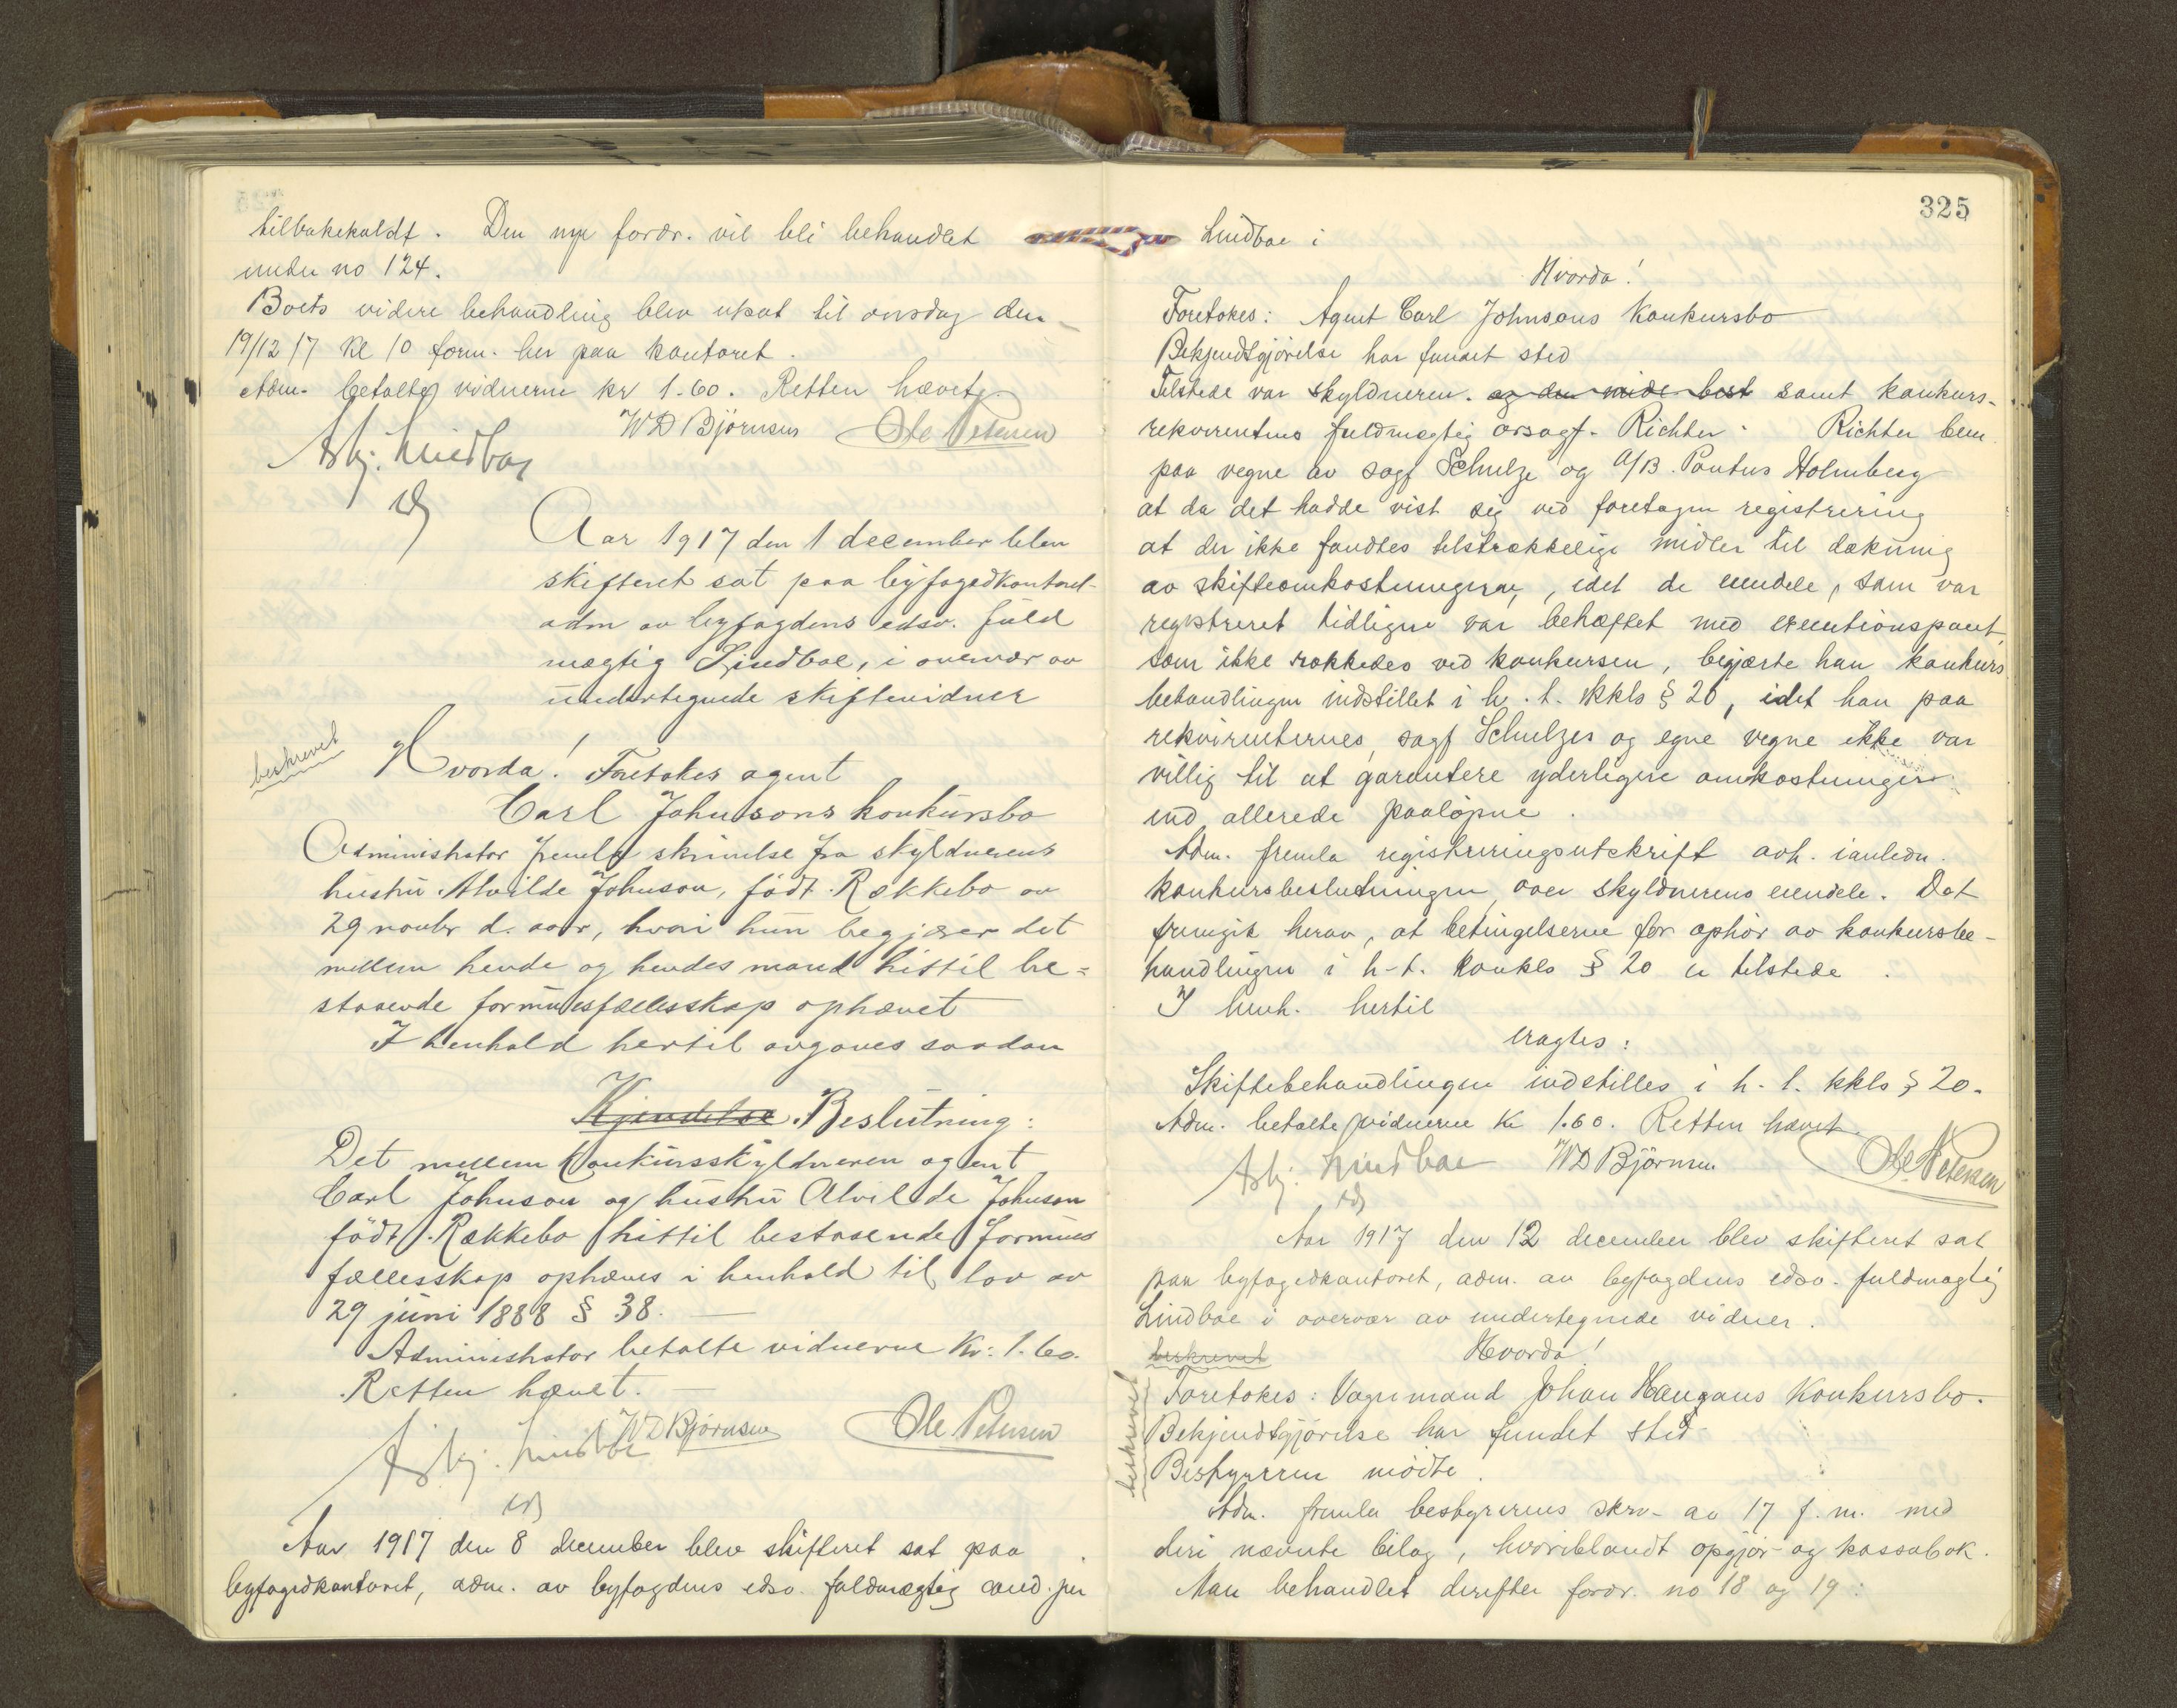 tilbakekaldt. Den nye fordr. vil bli behandlet
under no 124.
Boets videre behandling blev utsat til onsdag den
19/12 17 kl 10 form. her paa kontoret.
Adm. betalte vidnerne kr 1.60. Retten hævet.
Asbj. Lindboe
WD Björnsen Ole Petersen
Aar 1917 den 1 december blev
skifteret sat paa byfogedkontoret
adm av byfogdens edsv. fuld
mægtig Lindboe, i overvær av
undertegnede skiftevidner
beskrevet
Hvorda! Foretokes agent
Carl Johnsons konkursbo
Administrator fremla skrivelse fra skyldnerens
hustru Alvilde Johnson, född Rækkebo av
29 novbr d. aar, hvori hun begjærer det
mellem hende og hendes mand hittil be=
staaende formuesfællesskap ophævet
I henhold hertil avgaves saadan
Kjendelse Beslutning:
Det mellem konkursskyldneren agent
Carl Johnson og hustru Alvilde Johnson
född Rækkebo hittil bestaaende formues
fællesskap ophæves i henhold til lov av
29 juni 1888 § 38.
Administrator betalte vidnerne Kr: 1.60.
Retten hævet.
Asbj. Lindboe WD Björnsen Ole Petersen
Aar 1917 den 8 december blev skifteret sat paa
byfogedkontoret, adm. av byfogdens edsv. fuldmægtig cand. jur
325
Lindboe i
Hvorda!
Foretokes: Agent Carl Johnsons konkursbo
Bekjendtgjörelse har fundet sted
Tilstede var skyldneren. samt konkurs-
rekvirentens fuldmægtig orsagf. Richter. Richter bem.
paa vegne av sagf Schulze og A/B. Pontus Holmberg
at da det hadde vist sig ved foretagen registrering
at der ikke fandtes tilstrækkelige midler til dækning
av skifteomkostningerne, idet de eiendele, som var
registreret tidligere var behæftet med executionspant,
som ikke rokkedes ved konkursen, begjærte han konkurs
behandlingen indstillet i h. t. kkls § 20, idet han paa
rekvirenternes, sagf Schulzes og egne vegne ikke var
villig til at garantere yderligere omkostninger
end allerede paalöpne.
Adm. fremla registreringsutskrift avh. i anledn.
konkursbeslutningen over skyldnerens eiendele. Det
fremgik herav, at betingelserne for ophör av konkursbe-
handlingen i h-t. konkls § 20 er tilstede.
I henh. hertil
eragtes:
Skiftebehandlingen indstilles i h. t. kkls § 20.
Adm. betalte vidnerne Kr 1.60. Retten hævet.
Asbj. Lindboe WD Björnsen Ole Petersen
Aar 1917 den 12 december blev skifteret sat
paa byfogedkontoret, adm. av byfogdens edsv. fuldmægtig
Lindboe i overvær av undertegnede vidner.
beskrevet Hvorda!
beskrevet
Foretokes: Vognmand Johan Haugans Konkursbo.
Bekjendtgjörelse har fundet sted
Bestyreren mödte.
Adm. fremla bestyrerens skrv. av 17 f. m. med
deri nævnte bilag, hvoriblandt opgjör og kassabok.
Man behandlet derefter fordr. no 18 og 19: